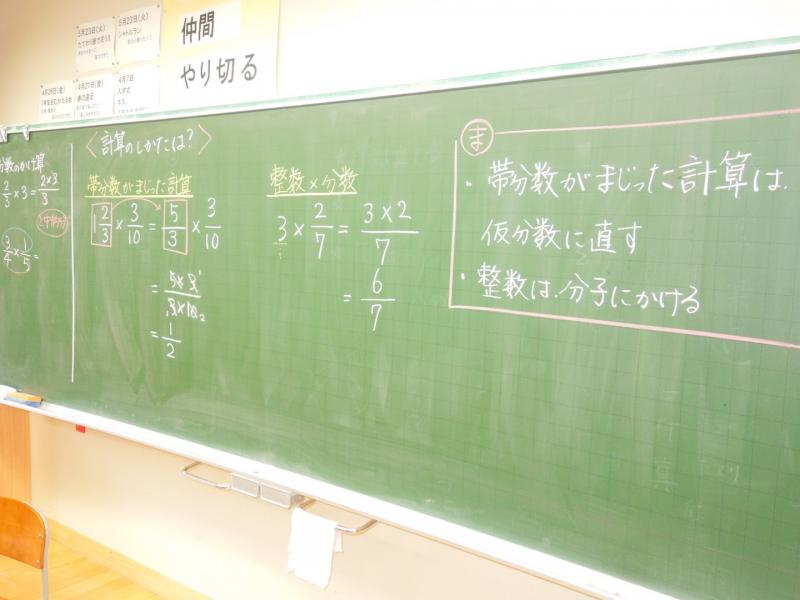 5月23日(火)
5月23日(火)
シャトルラン
仲間
やり切る
4月28日(金)
1年生をむかえる会
4月21日(金)
4月7日
入学式
分数のかけ算
2/3 × 3 = 2×3/3
3/4 × 1/5 =
〈計算のしかたは?〉
帯分数がまじった計算
1 2/3 × 3/10 = 5/3 × 3/10
= 5×3 1/3×10 2
= 1/2
整数×分数
3 × 2/7 = 3×2/7
= 6/7
ま
・帯分数がまじった計算は、
仮分数に直す
・整数は、分子にかける